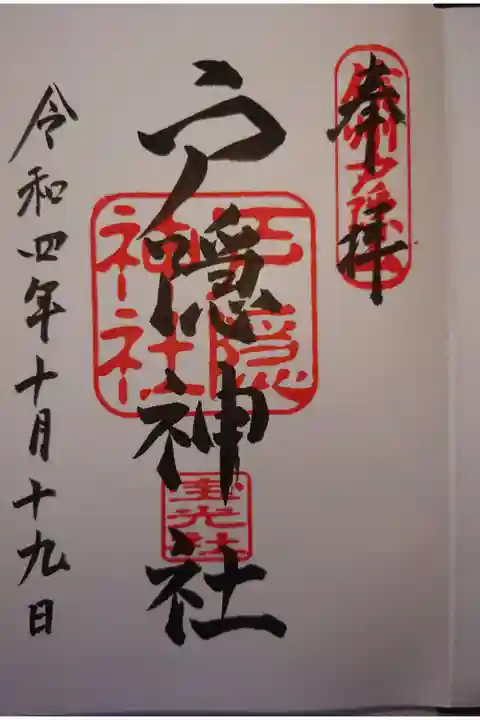 奉拝
信州戸隠
戸隠神社
戸隠神社
宝光社
令和四年十月十九日